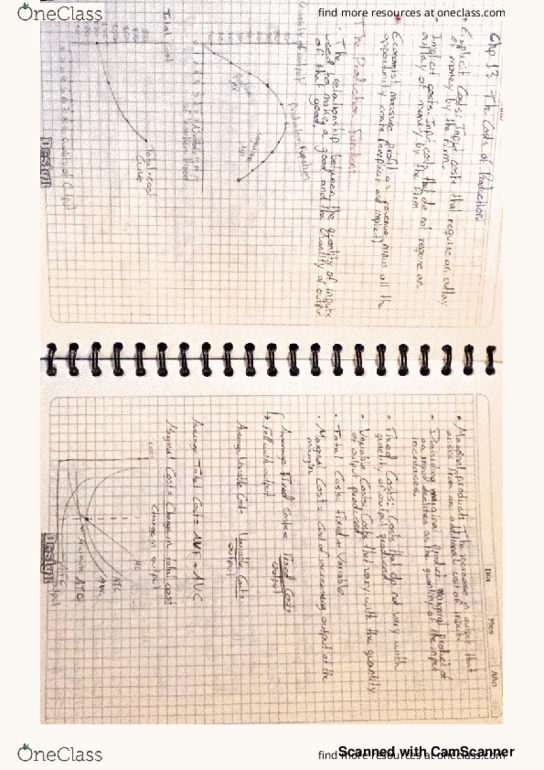 OneClass
find more resources at oneclass.com
Chp 13 The Costs of Production
• Explicit Costs: Input costs that require an outlay
of money by the firm.
Implicit costs: Input costs that do not require an
outlay of money by the firm
• Economist measure profit as revenue minus all the
opportunity costs (explicit and implicit)
The Production Function:
• The relationship between the quantity of inputs
used to make a good and the quantity of output
of that good.
Quantity of output
Production Function
Total Cost
Total-cost
Curve
Quantity of Output
Dia
Mes
Año
• Marginal product: The increase in output that
arises from an additional unit of input
• Diminishing marginal product: marginal product of
an input declines as the quantity of the input
increases.
• Fixed Costs: Costs that do not vary with
quantity of output produced
• Variable Costs: Costs that vary with the quantity
of output produced
• Total Cost: Fixed + Variable
• Marginal Cost = Cost of increasing output at the
margin
Average Fixed Cost = Fixed Costs
output
↳ Fall with output
Average Variable Cost = Variable Costs
output
Average Total Cost = AVC
Marginal Cost = Change in total cost
Change in output
Cost
MC
ATC
AVC
AFC
Minimum ATC
output
Scanned with CamScanner
OneClass
find more resources at oneclass.com